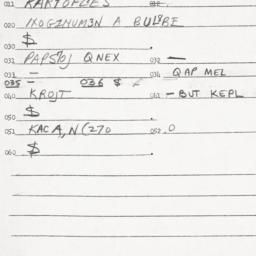 011 KARTOFLIES 012
020 IKOGZHUM3N A BULBRE
$
030 .
031 PAPS70J QNEX 032 —
031 — 034 QAP MEL
035 — 036 $
040 KROJT 041 — BUT KEPL
$
050 .
051 KACA, N (270 052 0
$
060 .